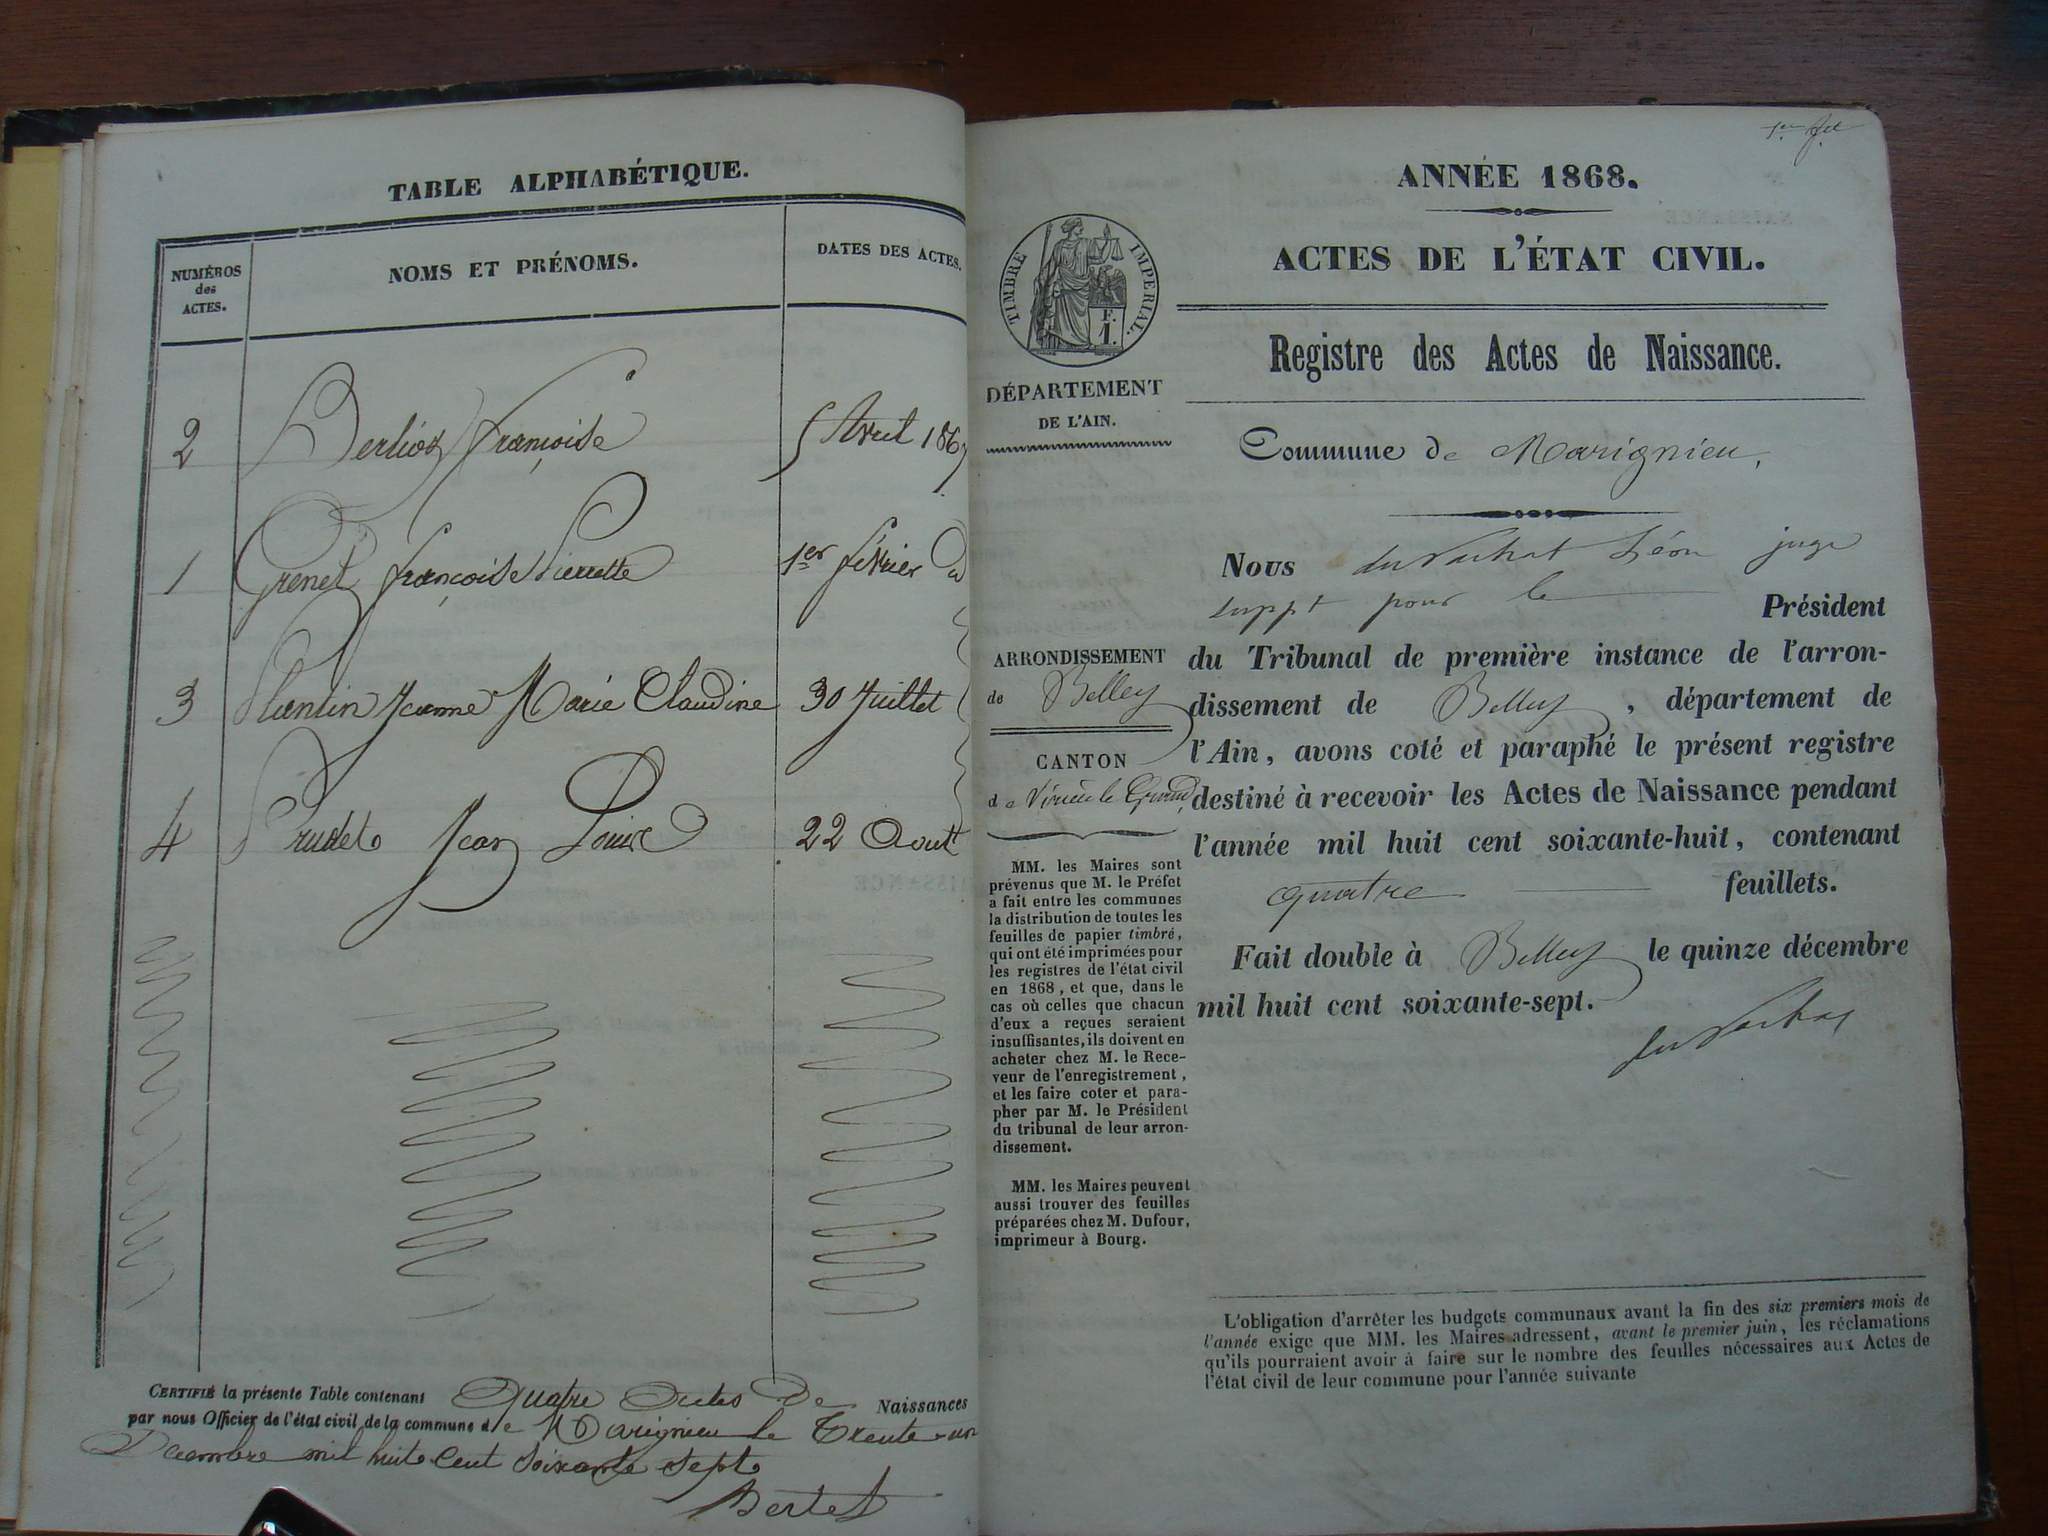 TABLE ALPHABÉTIQUE.
NUMÉROS
des
ACTES.
NOMS ET PRÉNOMS.
DATES DES ACTES.
2 Berlioz Françoise 5 Avril 1867
1 Grenet Françoise Pierrette 1er février
3 Plantin Jeanne Marie Claudine 30 Juillet
4 Prudet Jean Louis 22 Aout
CERTIFIÉ la présente Table contenant Quatre Actes De Naissances
par nous Officier de l'état civil de la commune de Marignieu le Trente-un
Décembre mil huit cent soixante sept
Bertet
1er fet
ANNÉE 1868.
ACTES DE L'ÉTAT CIVIL.
TIMBRE IMPERIAL.
F.
1.
DÉPARTEMENT
DE L'AIN.
Registre des Actes de Naissance.
Commune de Marignieu.
Nous du Vachat Léon juge
suppt pour le Président
du Tribunal de première instance de l'arron-
dissement de Belley, département de
l'Ain, avons coté et paraphé le présent registre
destiné à recevoir les Actes de Naissance pendant
l'année mil huit cent soixante-huit, contenant
quatre feuillets.
Fait double à Belley le quinze décembre
mil huit cent soixante-sept.
du Vachat
ARRONDISSEMENT
de Belley
CANTON
de Virieu le Grand
MM. les Maires sont
prévenus que M. le Préfet
a fait entre les communes
la distribution de toutes les
feuilles de papier timbré,
qui ont été imprimées pour
les registres de l'état civil
en 1868, et que, dans le
cas où celles que chacun
d'eux a reçues seraient
insuffisantes, ils doivent en
acheter chez M. le Rece-
veur de l'enregistrement,
et les faire coter et para-
pher par M. le Président
du tribunal de leur arron-
dissement.
MM. les Maires peuvent
aussi trouver des feuilles
préparées chez M. Dufour,
imprimeur à Bourg.
L'obligation d'arrêter les budgets communaux avant la fin des six premiers mois de
l'année exige que MM. les Maires adressent, avant le premier juin, les réclamations
qu'ils pourraient avoir à faire sur le nombre des feuilles nécessaires aux Actes de
l'état civil de leur commune pour l'année suivante